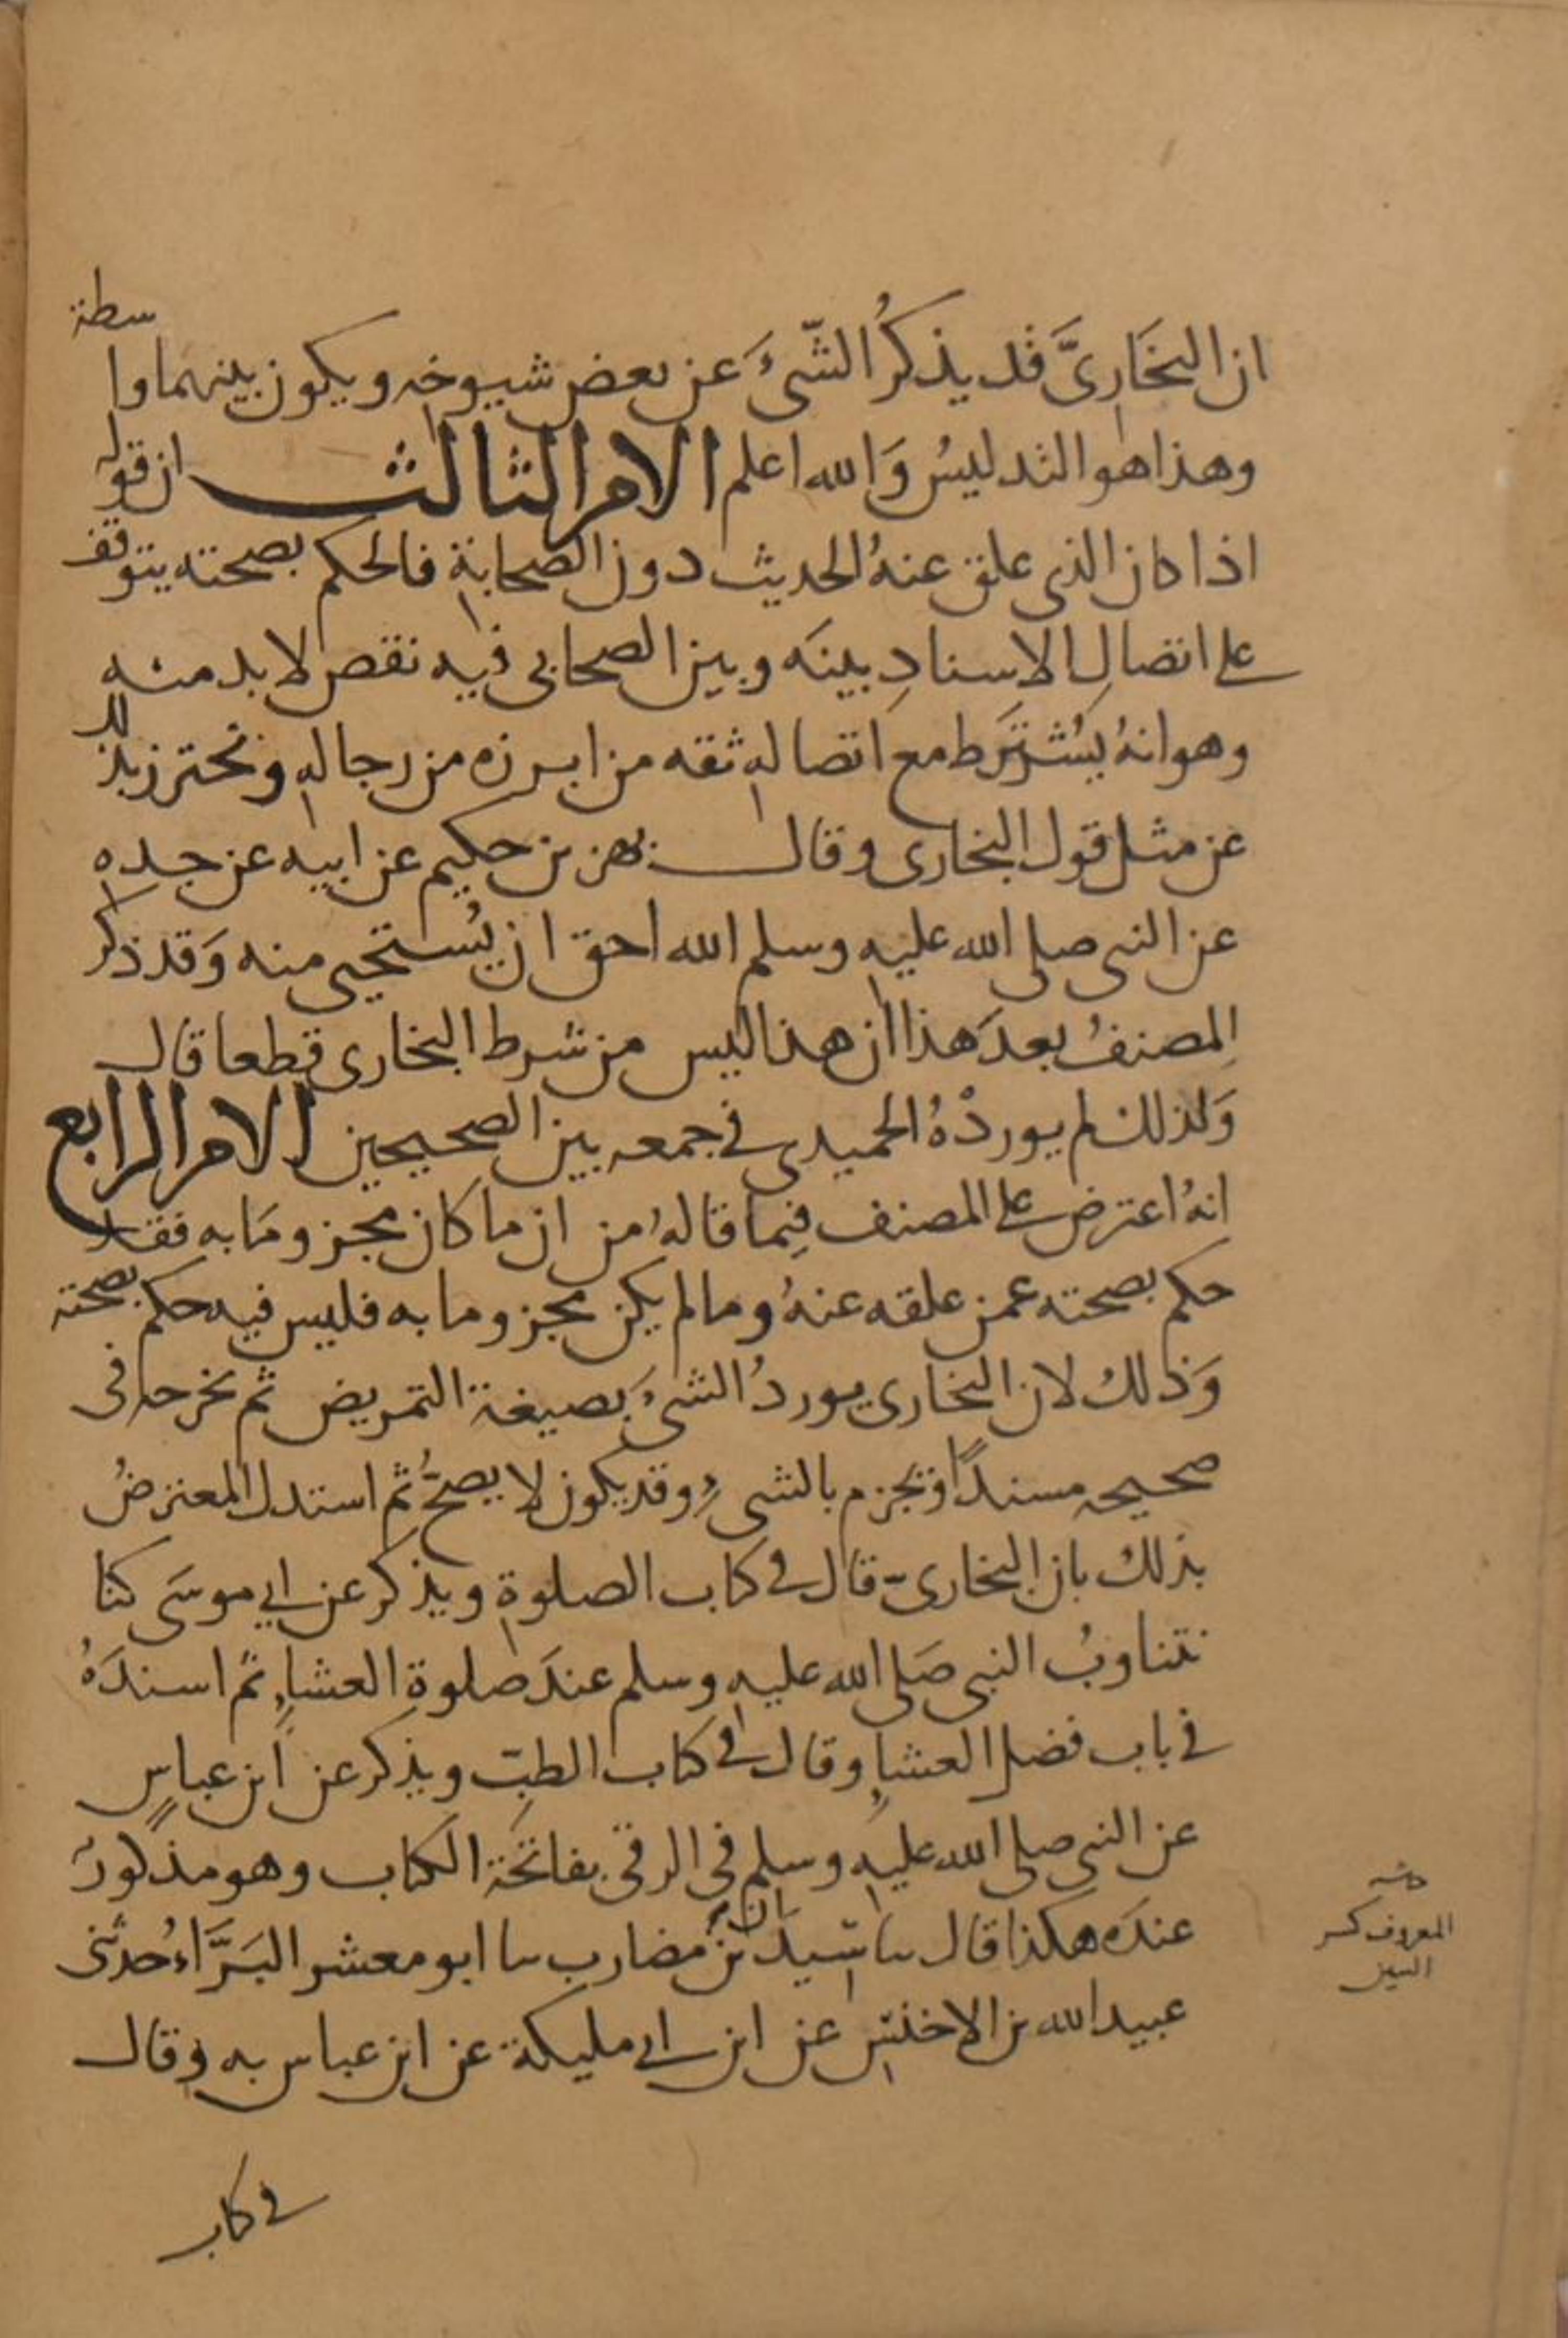 ان البخَارِىَّ قد يذكرُ الشّىءَ عن بعض شيوخه ويكون بينهما واسطة
وهذا هو التدليسُ وَالله اعلم الامر الثالث ان قوله
اذا كان الذى علق عنهُ الحديث دون الصحابة فالحكم بصحته يتوقف
على اتصالِ الاسنادِ بينَه وبين الصحابى فيه نقص لا بد منه
وهو انهُ يُشترَط مع اتصاله ثقه من ابرزه من رجاله ونحترز بذلك
عن مثل قول البخارى وقال بهز بن حكيم عن ابيه عن جده
عن النبى صلى الله عليه وسلم الله احق ان يُستحيى منه وَقد ذكر
المصنفُ بعدَ هذا ان هذا ليس من شرط البخارى قطعا قال
وَلذلك لم يوردْهُ الحميدى فى جمعه بين الصحيحين الامر الرابع
انهُ اعترض على المصنف فِيما قالهُ من ان ما كان مجزومَا به فقد
حكم بصحته عمن علقه عنهُ وما لم يكن مجزوما به فليس فيه حكم بصحته
وَذلك لان البخارى يوردُ الشىءَ بصيغة التمريض ثم يخرجه فى
صحيحه مسندًا ويجزم بالشىءِ وقد يكون لا يصحُّ ثم استدل المعترضُ
بذلك بان البخارى قال فى كتاب الصلوة ويذكر عن ابي موسَى كنا
نتناوبُ النبى صَلى الله عليه وسلم عندَ صلوة العشاءِ ثم اسندَهُ
فى باب فضل العشاءِ وقال فى كتاب الطبّ ويذكر عن ابن عباسٍ
عن النبى صلى الله عليه وسلم فى الرقى بفاتحة الكتاب وهو مذكورٌ
عندَه هكذا قال سا سيدَان بنُ مضارب سا ابو معشر البَرَّاءُ حدثنى
عبيد الله بن الاخنس عن ابن ابى مليكة عن ابن عباس به وقال
فى كتاب
المعروف